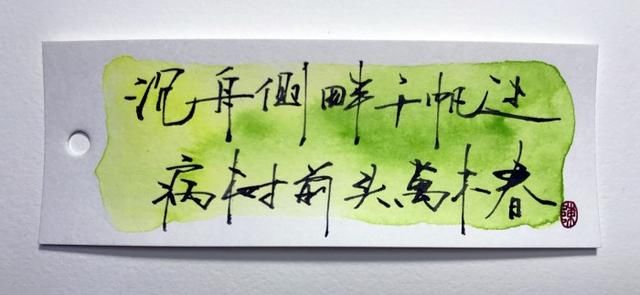 沉舟侧畔千帆过
病树前头萬木春
陳